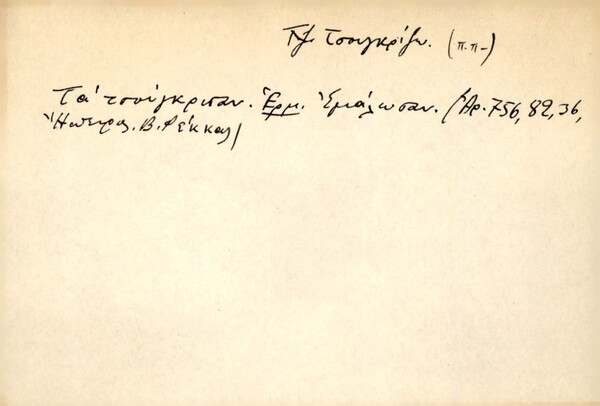 τσουγκρίζω. (π.π-)
Τά τσούγκρισαν. Ἑρμ. Ἐμάλωσαν. (Ἀρ. 756, 82, 36,
Ἤπειρος. Β. Φέκκας)